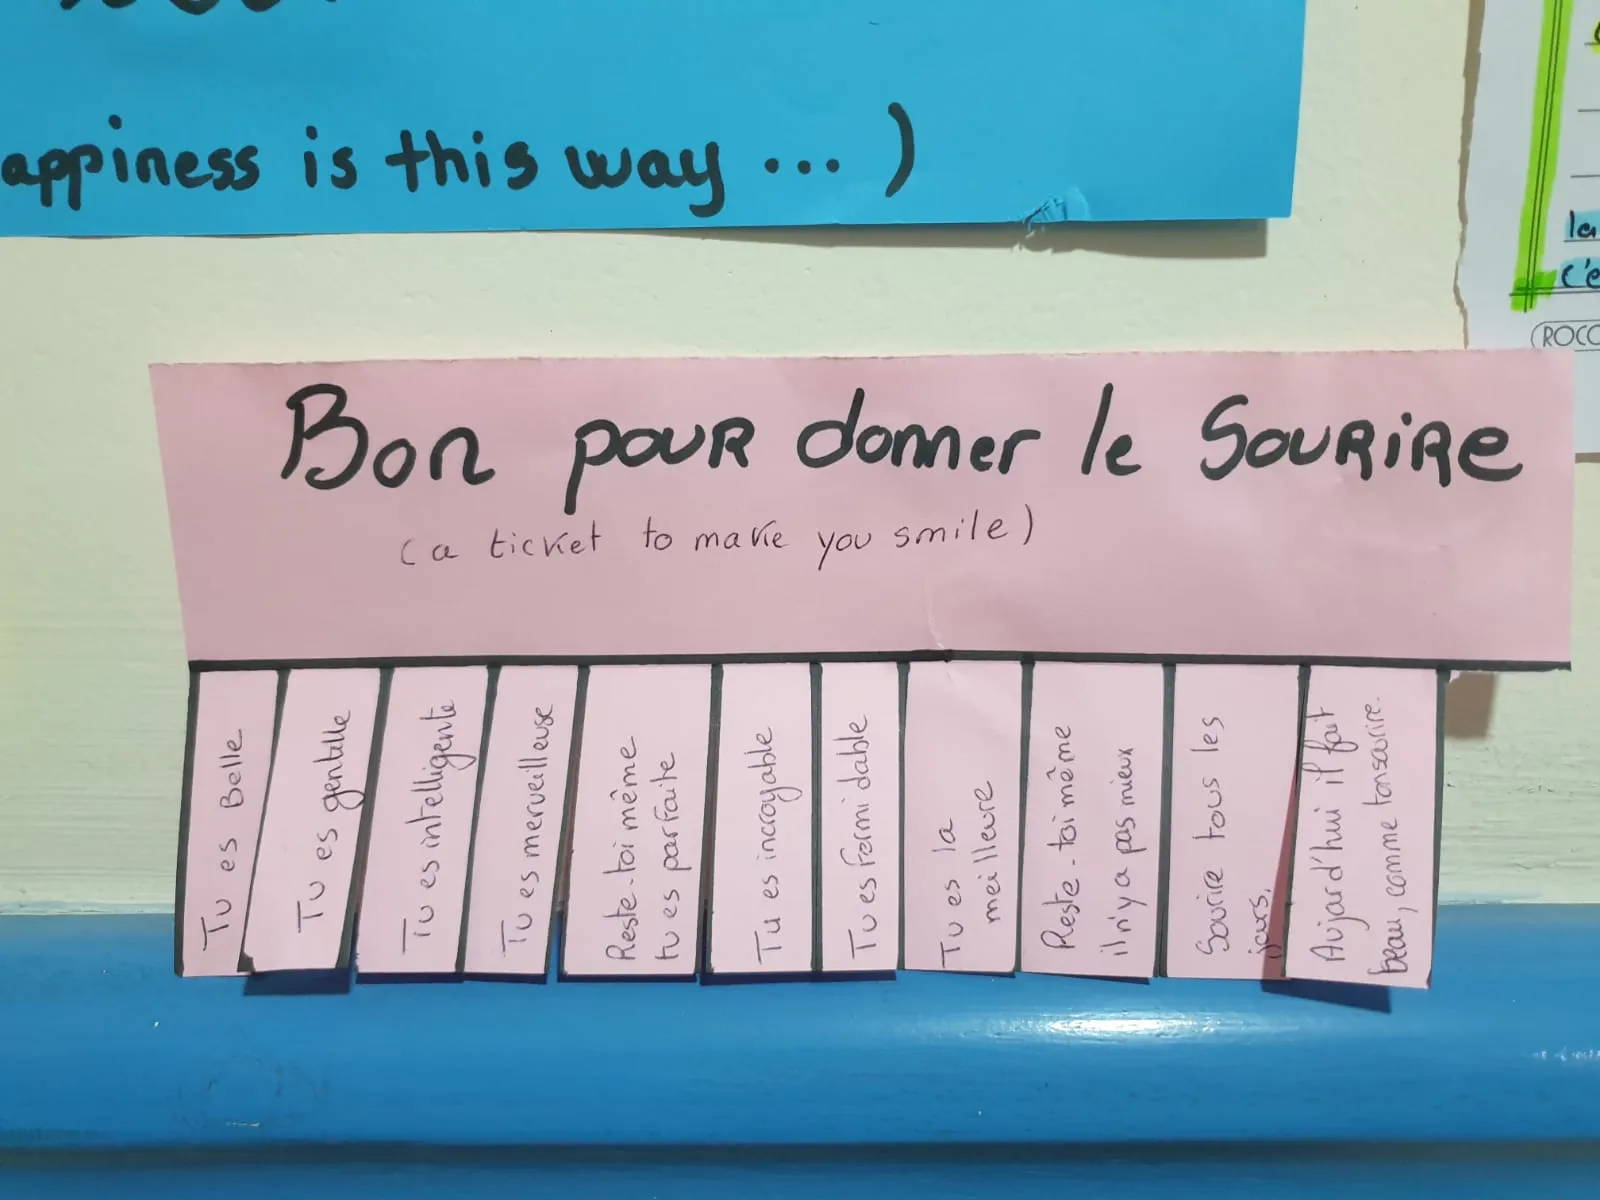 appiness is this way ... )
la
c'e
ROCO
Bon pour donner le Sourire
(a ticket to make you smile)
Tu es Belle
Tu es gentille
Tu es intelligente
Tu es merveilleuse
Reste-toi même
tu es parfaite
Tu es incroyable
Tu es formidable
Tu es la
meilleure
Reste-toi même
il n'y a pas mieux
Sourire tous les
jours.
Aujourd'hui il fait
beau, comme ton sourire.